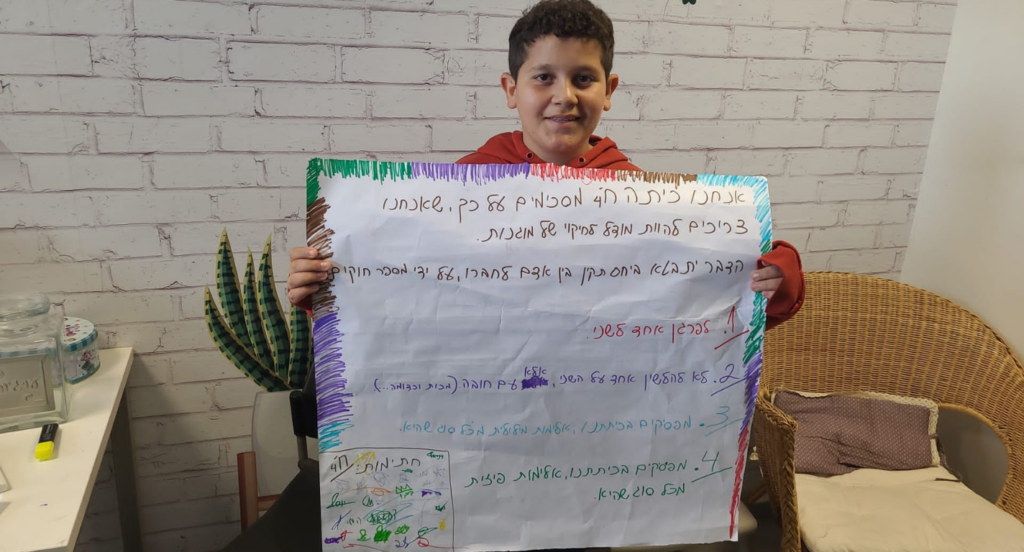 אנחנו כיתה ח'4 מסכימים על כך, שאנחנו
צריכים להוות מודל לחיקוי של מוגנות.
הדבר יתבטא ביחס תקין בין אדם לחברו, על ידי מספר חוקים
1. לפרגן אחד לשני.
2. לא להלשין אחד על השני, אלא עם חובה (מכות וכדומה..)
3. מפסקים בכיתתנו, אלימות מילולית מכל סוג שהיא.
4. מפסקים בכיתתנו, אלימות פיזית
מכל סוג שהיא.
חתימות: ח'4